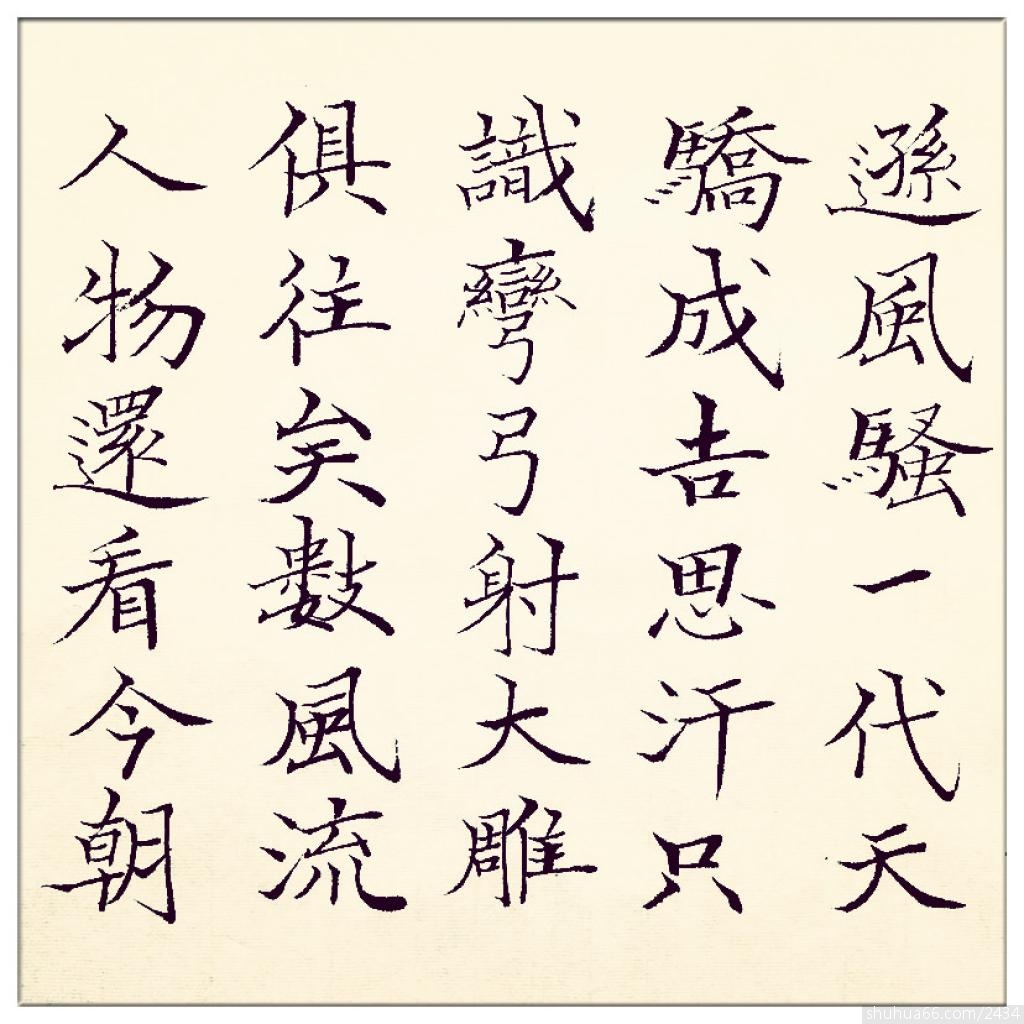 遜風騷一代天
驕成吉思汗只
識彎弓射大雕
俱往矣數風流
人物還看今朝
shuhua66.com/2434